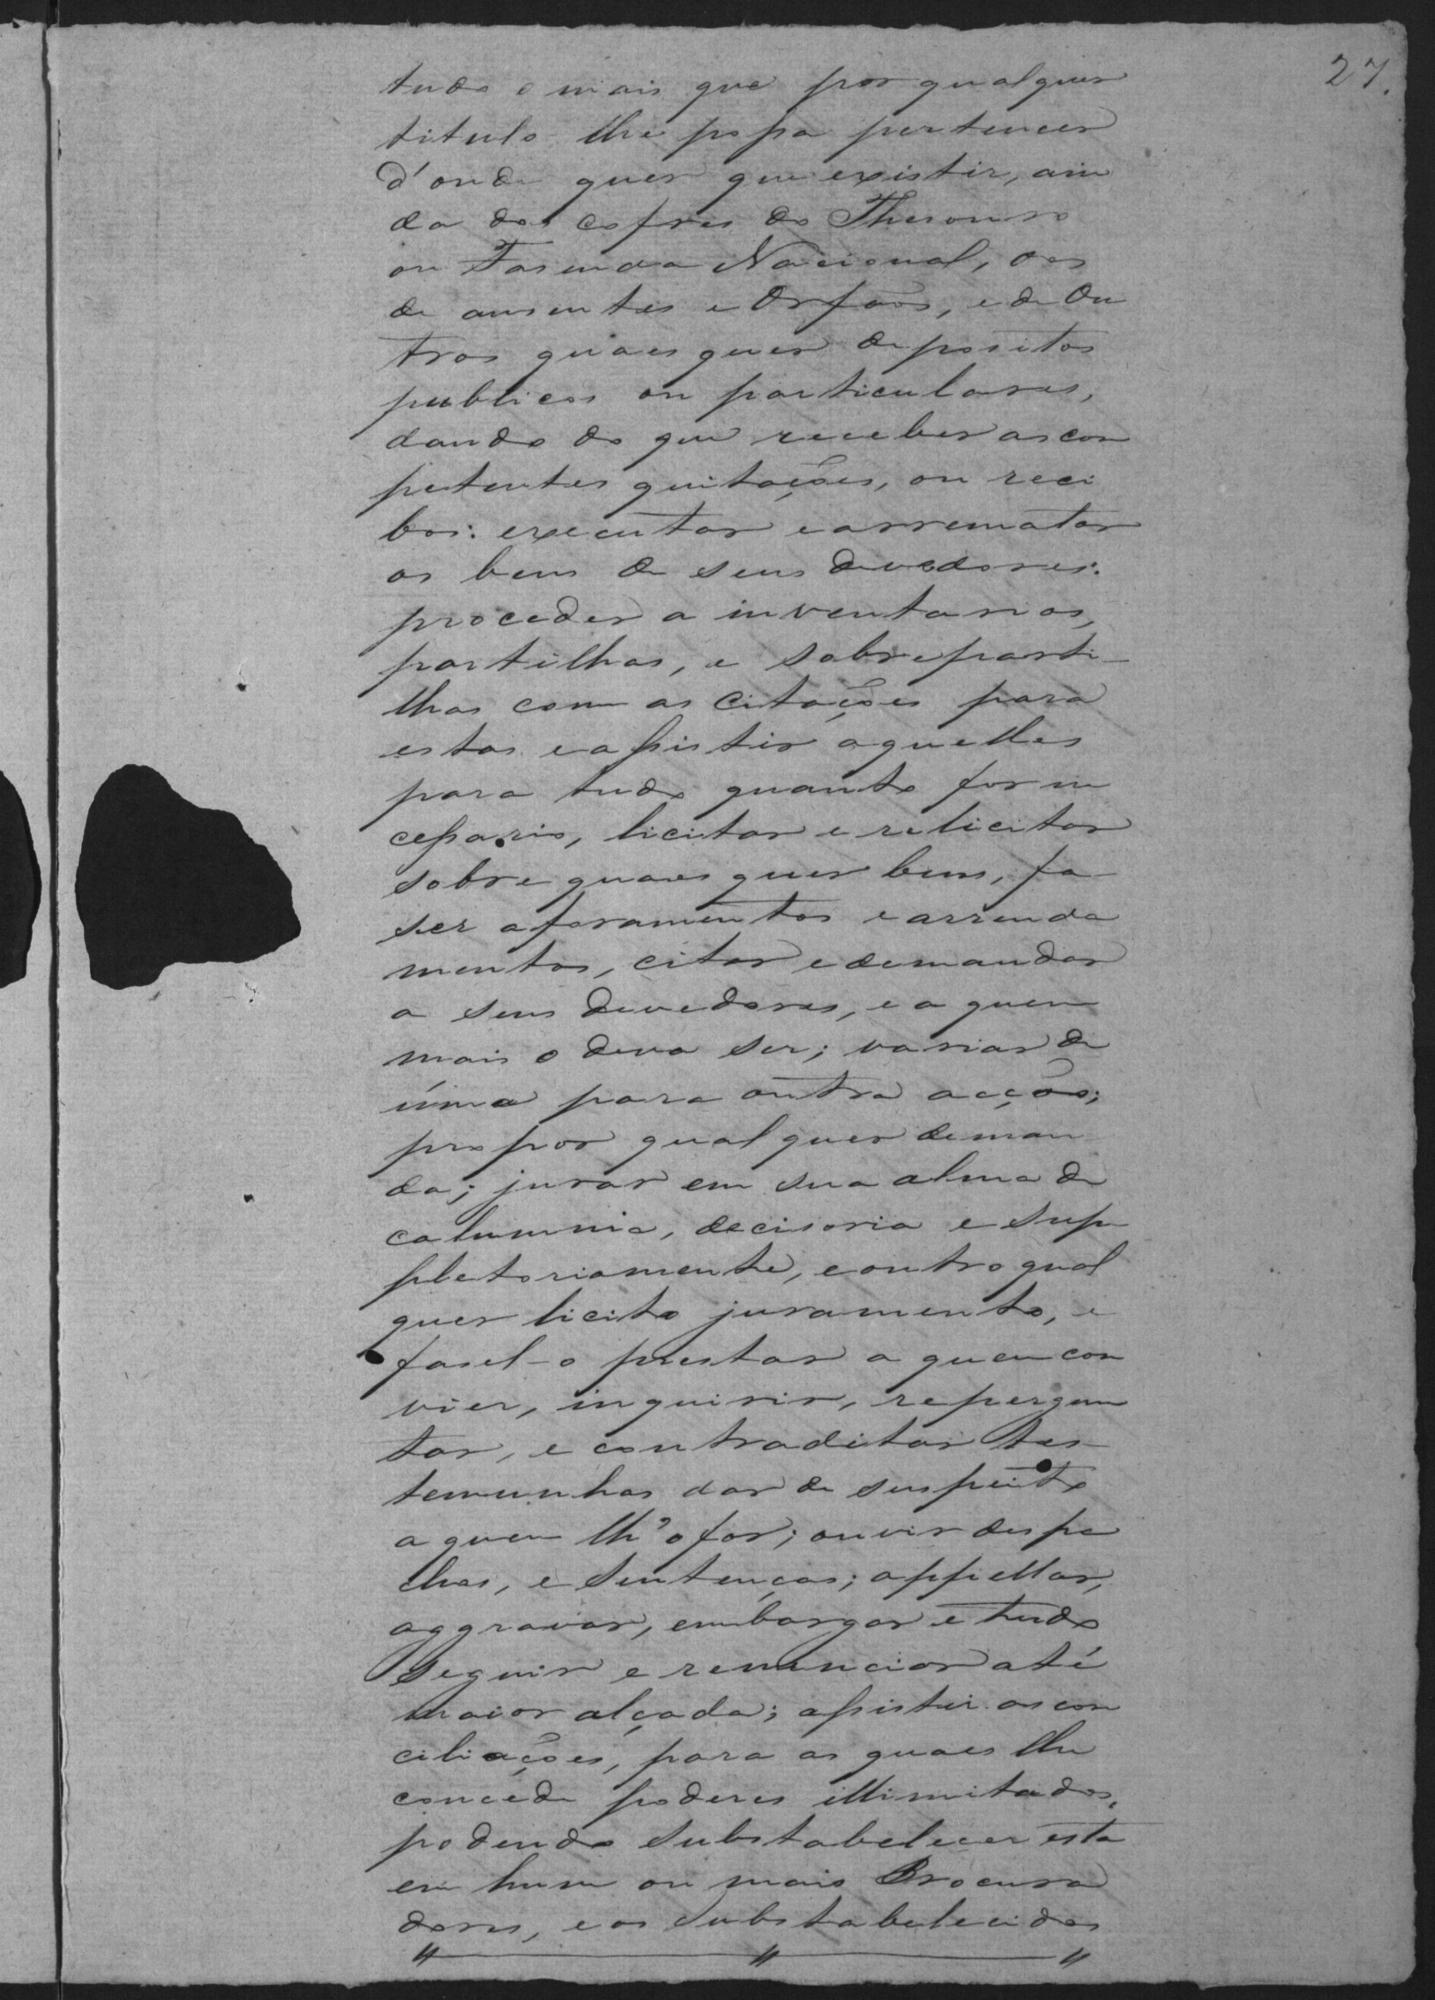 27.
tudo o mais que por qualquer
titulo lhe possa pertencer
d'onde quer que existir, ain
da dos cofres do Thesouro
ou Fasenda Nacional, dos
de ausentes e Orfãos, e de Ou
tros quaes quer depositos
publicos ou particulares,
dando do que receber as com
petentes quitações, ou reci
bos: executar e arrematar
os bens de seus devedores:
proceder a inventarios,
partilhas, e sobreparti-
lhas com as citações para
estas e assistir aquelles
para tudo quanto for ne
cessario, licitar e relicitar
sobre quaes quer bens, fa-
ser aforamentos e arrenda
mentos, citar e demandar
a seus devedores, e a quem
mais o deva ser; variar de
uma para outra acção;
propor qualquer deman
da; jurar em sua alma de
calumnia, decisoria e sup
pletoriamente, e outro qual
quer licito juramento, e
fasel-o prestar a quem con
vier, inquirir, repergun
tar, e contraditar tes-
temunhas dar de suspeito
a quem lh'o for; ouvir despa
chos, e Sentenças; appellar,
aggravar, embargar e tudo
seguir e renunciar até
maior alçada; assistir as con
ciliações, para as quaes lhe
concede poderes illimitados,
podendo substabelecer esta
em hum ou mais Procura
dores, e os substabelecidos